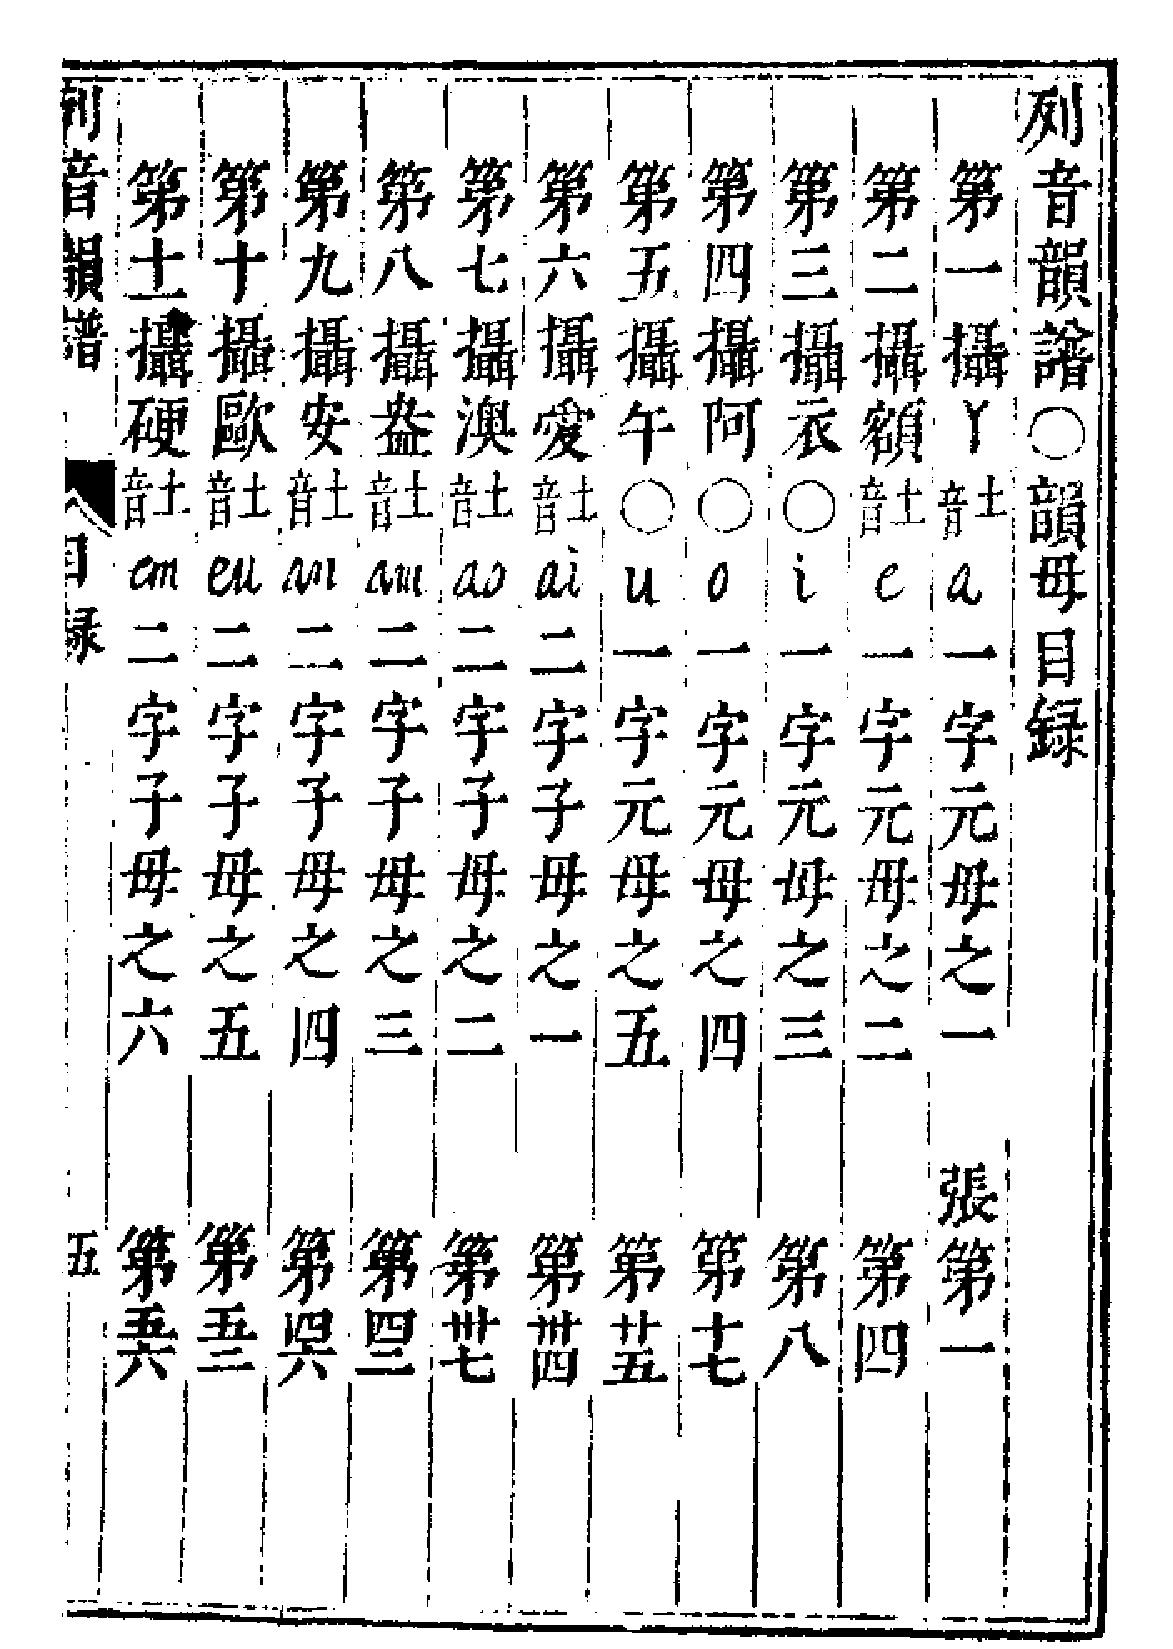 列音韻譜〇韻母目録
第一攝丫土音a一字元母之一 張第一
第二攝額土音e一字元母之二 第四
第三攝衣〇i一字元母之三 第八
第四攝阿〇o一字元母之四 第十七
第五攝午〇u一字元母之五 第廿五
第六攝愛土音ai二字子母之一 第卅四
第七攝澳土音ao二字子母之二 第卅七
第八攝盎土音am二字子母之三 第四二
第九攝安土音an二字子母之四 第四六
第十攝歐土音eu二字子母之五 第五三
第十一攝硬土音em二字子母之六 第五六
列音韻譜 目録 五